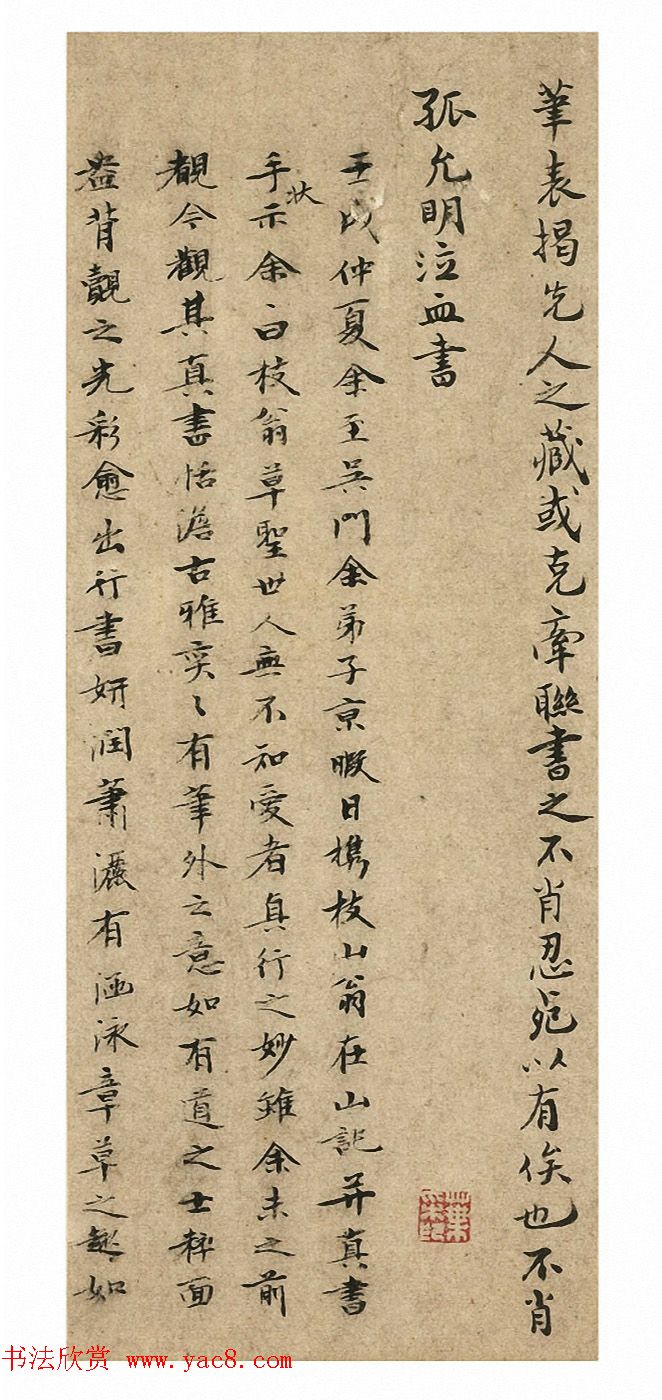 華表揭先人之藏或克牽聯書之不肖忍死以有俟也不肖
孤允明泣血書
壬戌仲夏余至吳門余弟子京暇日攜枝山翁在山記并真書
手狀示余曰枝翁草聖世人無不知愛者真行之妙雖余未之前
覩今觀其真書恬澹古雅奕〻有筆外之意如有道之士粹面
盎背覿之光彩愈出行書妍潤蕭灑有涵泳章草之趣如
书法欣赏 www.yac8.com